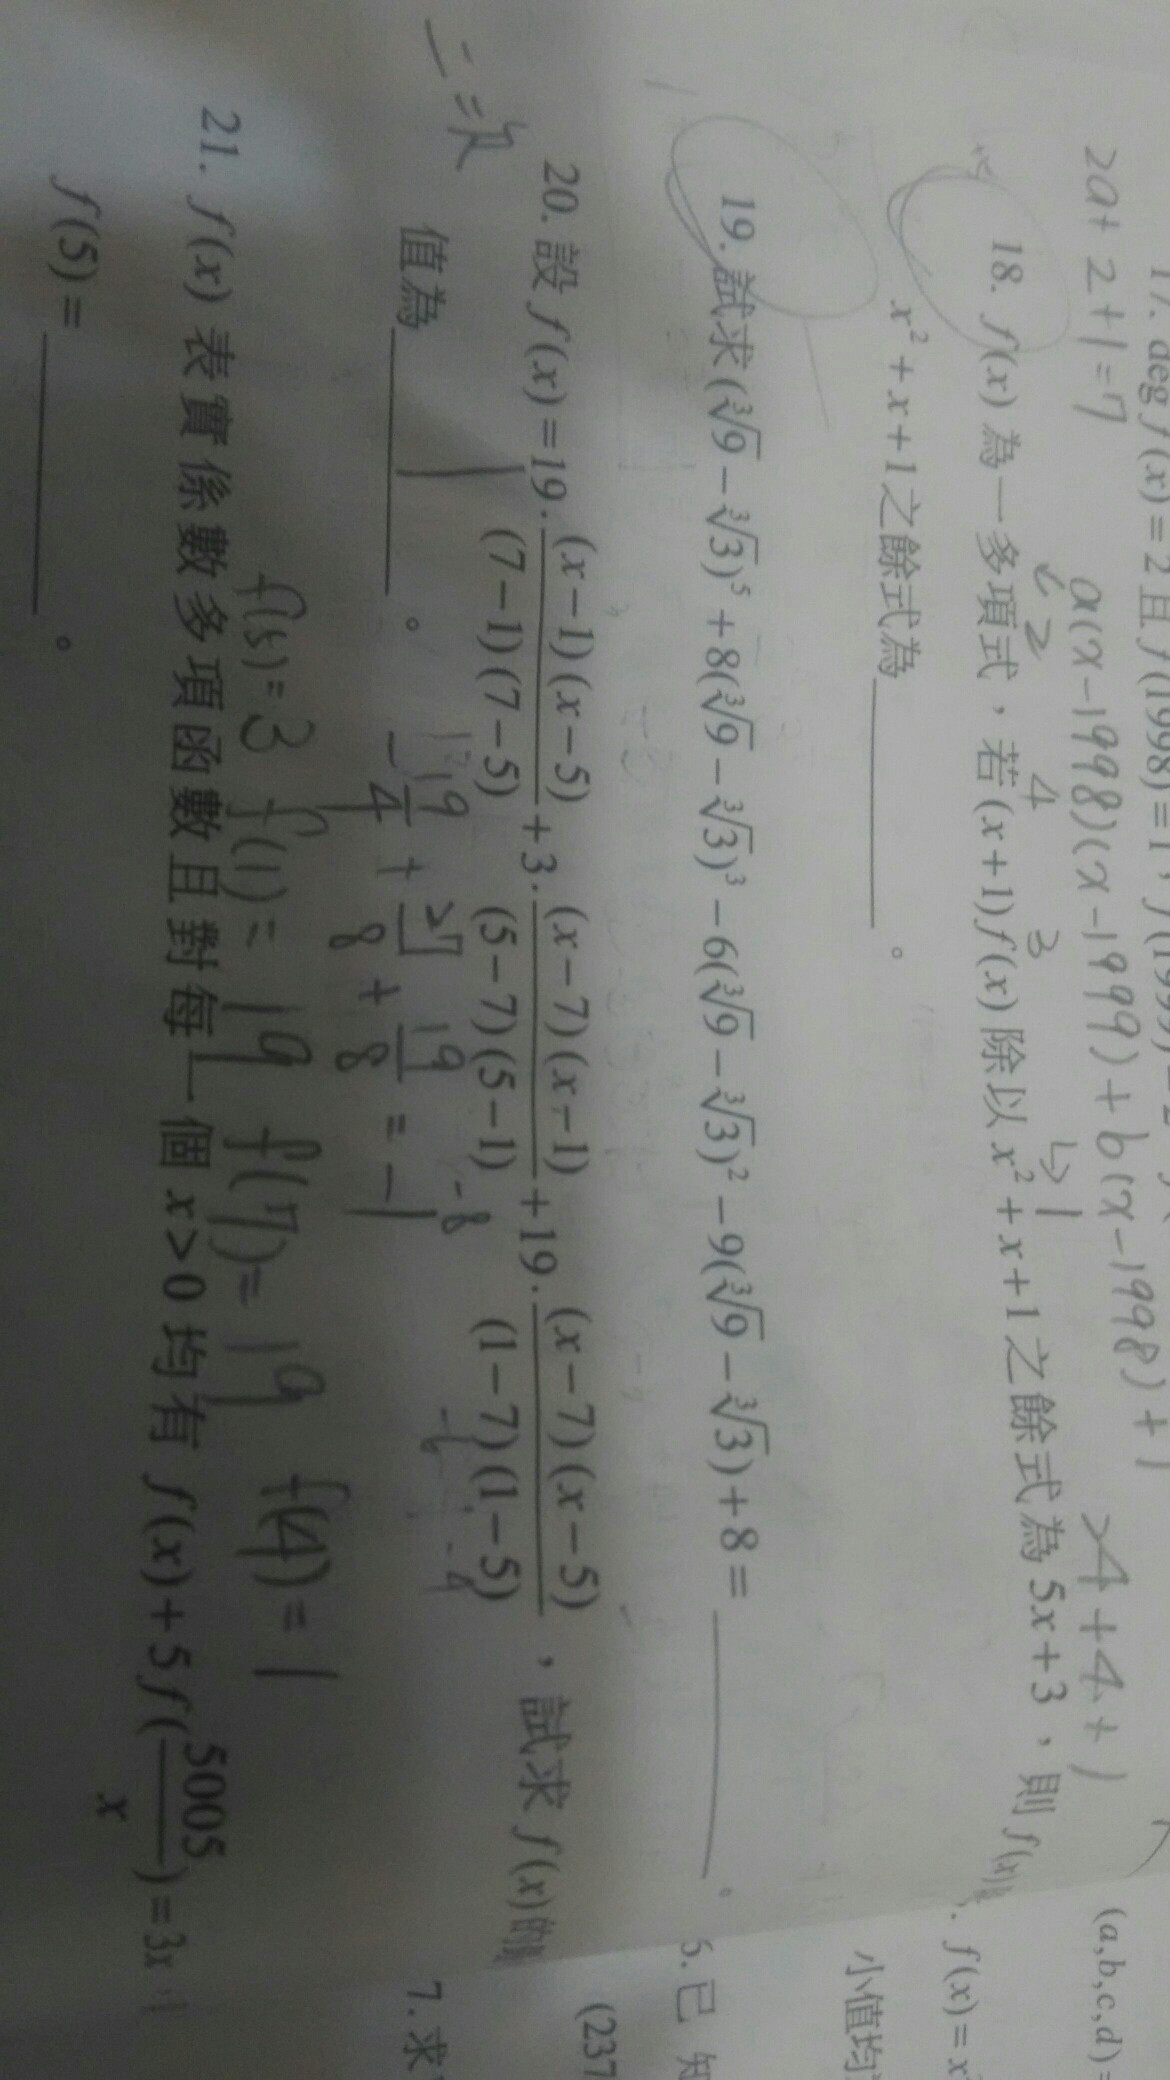 17. deg f(x) = 2 且 f(1998) = 1，
a(x-1998)(x-1999)+b(x-1998)+1
2a+2+1=7
4+4+1
18. f(x) 為一多項式，若 (x+1)f(x) 除以 x²+x+1 之餘式為 5x+3，則 f(x)
x²+x+1 之餘式為________。
19. 試求 (∛9-∛3)⁵+8(∛9-∛3)³-6(∛9-∛3)²-9(∛9-∛3)+8=________。
20. 設 f(x)=19·(x-1)(x-5)/(7-1)(7-5)+3·(x-7)(x-1)/(5-7)(5-1)+19·(x-7)(x-5)/(1-7)(1-5)，試求 f(x) 的
二次
值為____1____。
-8
-6 -4
19/4+21/8+19/8=-1
f(5)=3 f(1)=19 f(7)=19 f(4)=1
21. f(x) 表實係數多項函數且對每一個 x>0 均有 f(x)+5f(5005/x)=3x
f(5)=________。
(a,b,c,d)=
f(x)=x
小值均
6. 已知
(237
7. 求